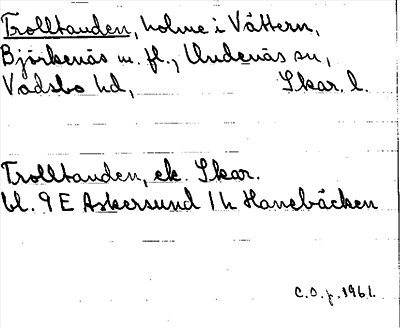 Trolltanden, holme i Vättern,
Björkenäs m. fl., Undenäs sn,
Vadsbo hd, Skar. l.
Trolltanden, ek. Skar.
bl. 9 E Askersund 1 h Hanebäcken
C.O. p. 1961.